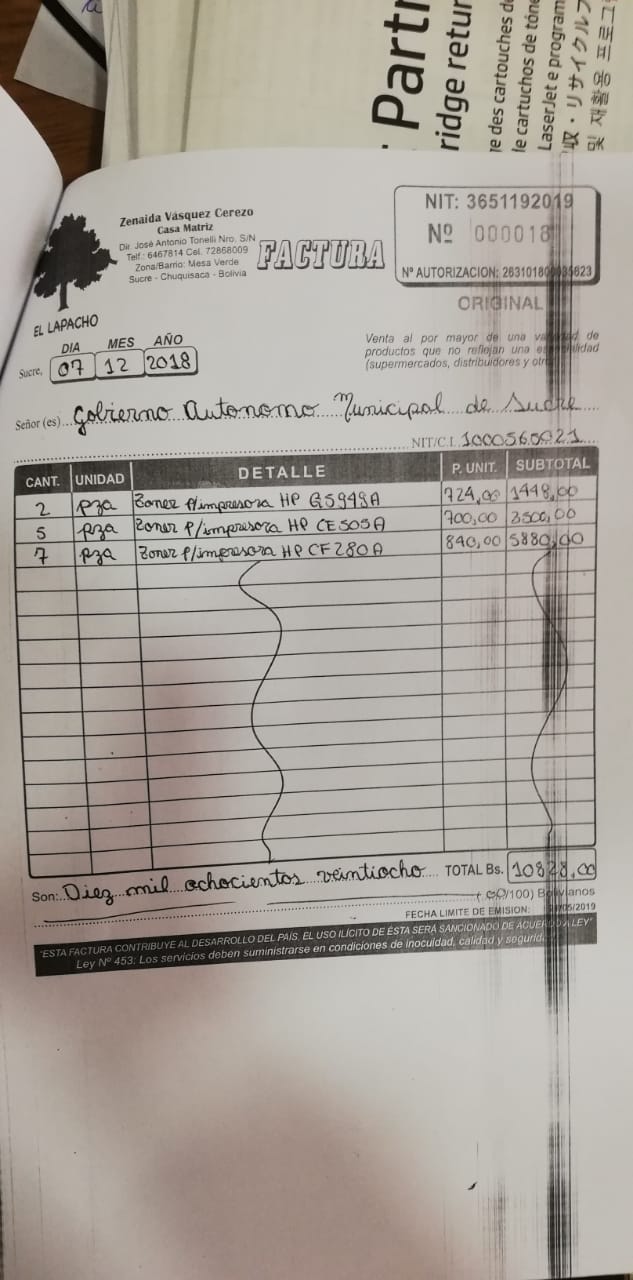 Partn
ridge retur
ge des cartouches de
de cartuchos de tóne
LaserJet e program
収・リサイクルプ
및 재활용 프로그
Zenaida Vásquez Cerezo
Casa Matriz
Dir. José Antonio Tonelli Nro. S/N
Telf.: 6467814 Cel. 72868009
Zona/Barrio: Mesa Verde
Sucre - Chuquisaca - Bolivia
EL LAPACHO
FACTURA
NIT: 3651192019
Nº 000018
Nº AUTORIZACION:
ORIGINAL
DIA MES AÑO
Sucre, 07 12 2018
Venta al por mayor de una de
productos que no reflejan una
(supermercados, distribuidores y
Señor (es) Gobierno Autonomo Municipal de Sucre
NIT/C.I. 1000565021
CANT. UNIDAD DETALLE P. UNIT. SUBTOTAL
2 pza Toner p/impresora HP Q5949A 724,00 1448,00
5 pza Toner p/impresora HP CE505A 700,00 3500,00
7 pza Toner p/impresora HP CF280A 840,00 5880,00
Son: Diez mil ochocientos veintiocho TOTAL Bs. 10828,00
(00/100) Bolivianos
FECHA LIMITE DE EMISION: /05/2019
"ESTA FACTURA CONTRIBUYE AL DESARROLLO DEL PAÍS, EL USO ILÍCITO DE ÉSTA SERÁ SANCIONADO DE ACUERDO A LEY"
Ley Nº 453: Los servicios deben suministrarse en condiciones de inocuidad, calidad y segurid